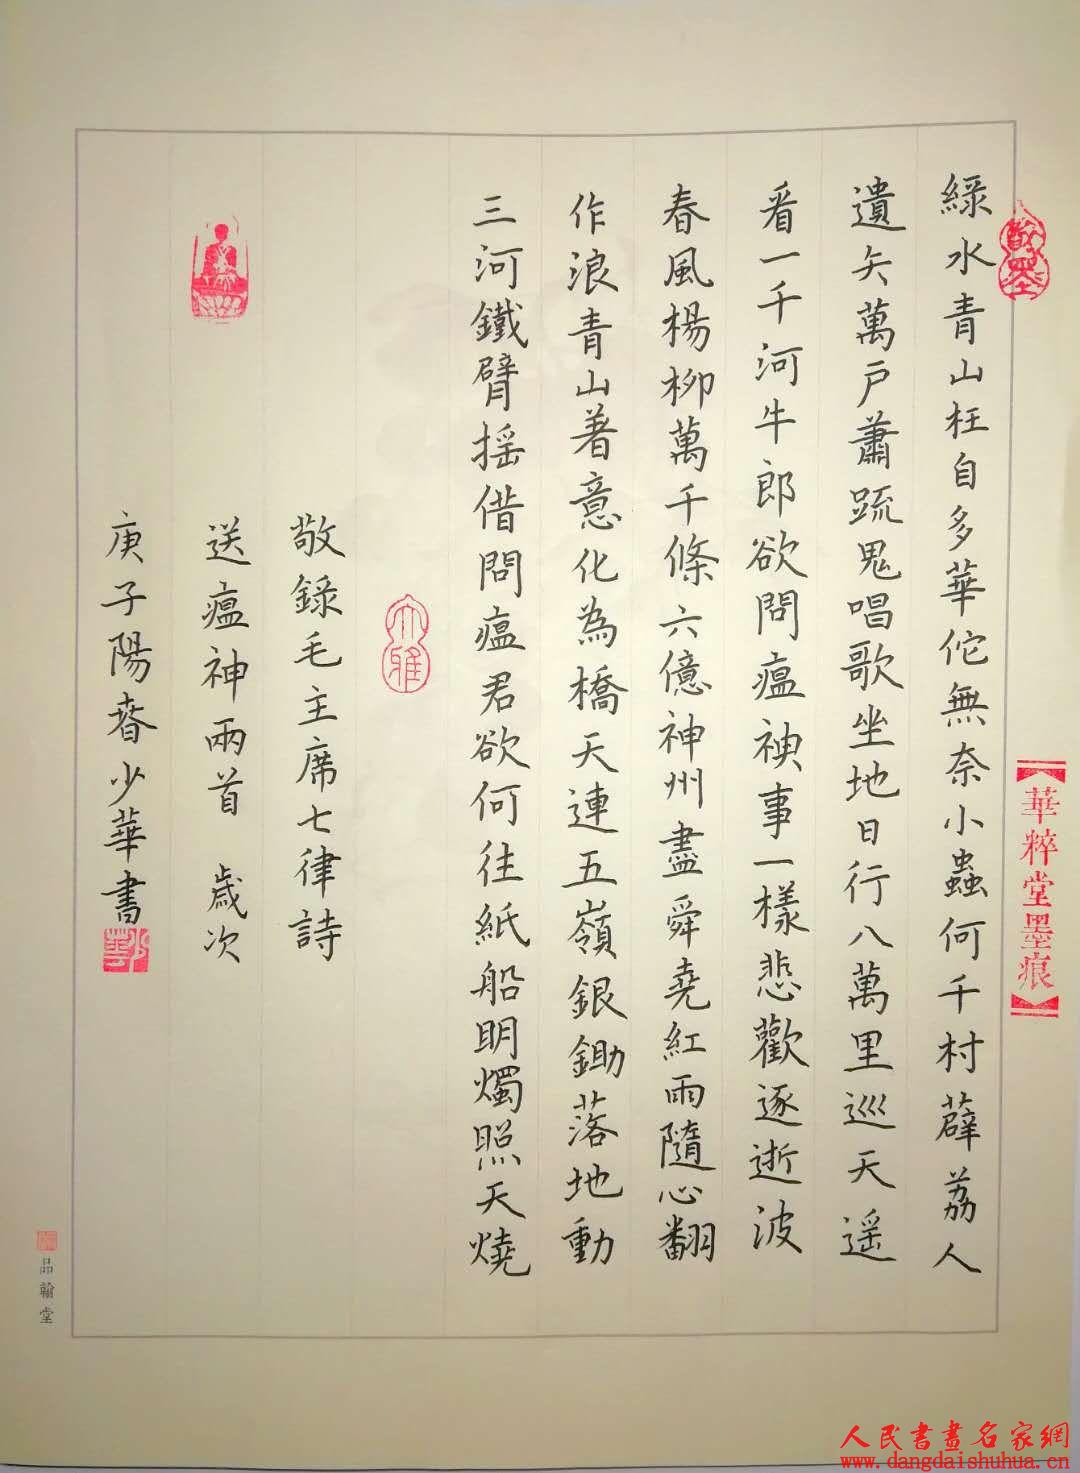 綠水青山枉自多華佗無奈小蟲何千村薜荔人
遺矢萬戶蕭疏鬼唱歌坐地日行八萬里巡天遥
看一千河牛郎欲問瘟神事一樣悲歡逐逝波
春風楊柳萬千條六億神州盡舜堯紅雨隨心翻
作浪青山著意化為橋天連五嶺銀鋤落地動
三河鐵臂揺借問瘟君欲何往紙船明燭照天燒
大雅
敬錄毛主席七律詩
送瘟神兩首 歲次
庚子陽春少華書
華粹堂墨痕
品翰堂
人民書畫名家網
www.dangdaishuhua.cn